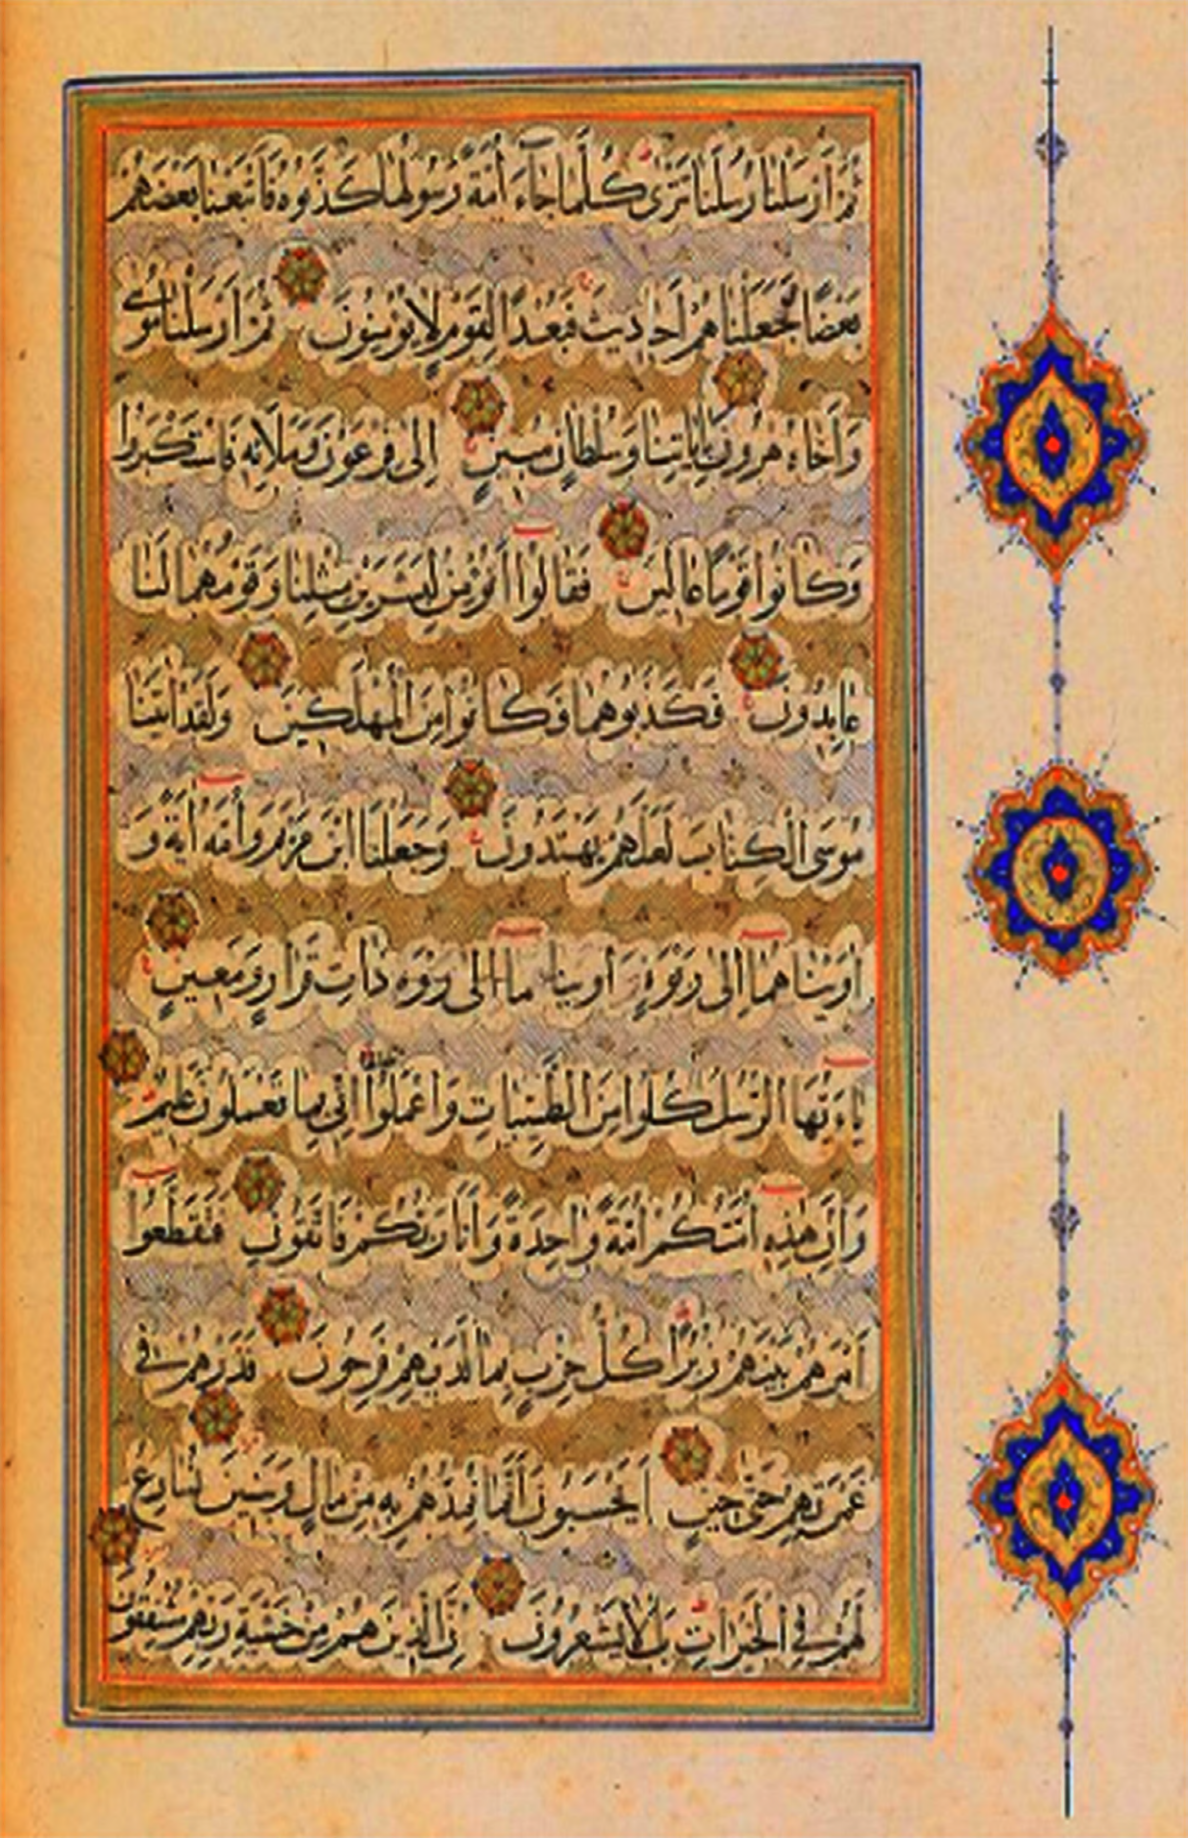 ثُمَّ أَرْسَلْنَا رُسُلَنَا تَتْرَى كُلَّمَا جَاءَ أُمَّةً رَسُولُهَا كَذَّبُوهُ فَأَتْبَعْنَا بَعْضَهُمْ
بَعْضًا فَجَعَلْنَاهُمْ أَحَادِيثَ فَبُعْدًا لِقَوْمٍ لَا يُؤْمِنُونَ ثُمَّ أَرْسَلْنَا مُوسَى
وَأَخَاهُ هَرُونَ بِآيَاتِنَا وَسُلْطَانٍ مُبِينٍ إِلَى فِرْعَوْنَ وَمَلَائِهِ فَاسْتَكْبَرُوا
وَكَانُوا قَوْمًا عَالِينَ فَقَالُوا أَنُؤْمِنُ لِبَشَرَيْنِ مِثْلِنَا وَقَوْمُهُمَا لَنَا
عَابِدُونَ فَكَذَّبُوهُمَا فَكَانُوا مِنَ الْمُهْلَكِينَ وَلَقَدْ آتَيْنَا
مُوسَى الْكِتَابَ لَعَلَّهُمْ يَهْتَدُونَ وَجَعَلْنَا ابْنَ مَرْيَمَ وَأُمَّهُ آيَةً وَ
آوَيْنَاهُمَا إِلَى رَبْوَةٍ آوينا ما إلى ربوه ذَاتِ قَرَارٍ وَمَعِينٍ
يَاءَيُّهَا الرُّسُلُ كُلُوا مِنَ الطَّيِّبَاتِ وَاعْمَلُوا صالحا إِنِّي بِمَا تَعْمَلُونَ عَلِيمٌ
وَإِنَّ هَذِهِ أُمَّتُكُمْ أُمَّةً وَاحِدَةً وَأَنَا رَبُّكُمْ فَاتَّقُونِ فَتَقَطَّعُوا
أَمْرَهُمْ بَيْنَهُمْ زُبُرًا كُلُّ حِزْبٍ بِمَا لَدَيْهِمْ فَرِحُونَ فَذَرْهُمْ فِي
غَمْرَتِهِمْ حَتَّى حِينٍ أَيَحْسَبُونَ أَنَّمَا نُمِدُّهُمْ بِهِ مِنْ مَالٍ وَبَنِينَ نُسَارِعُ
لَهُمْ فِي الْخَيْرَاتِ بَلْ لَا يَشْعُرُونَ إِنَّ الَّذِينَ هُمْ مِنْ خَشْيَةِ رَبِّهِمْ مُشْفِقُونَ